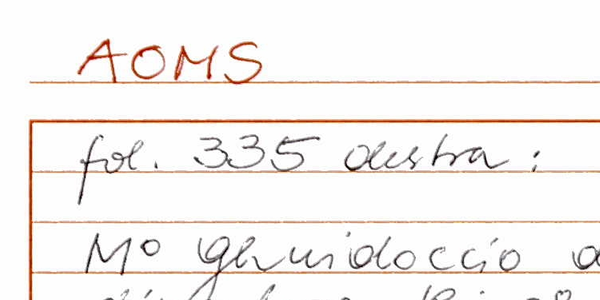 AOMS
fol. 335 destra:
M° Ghuidoccio